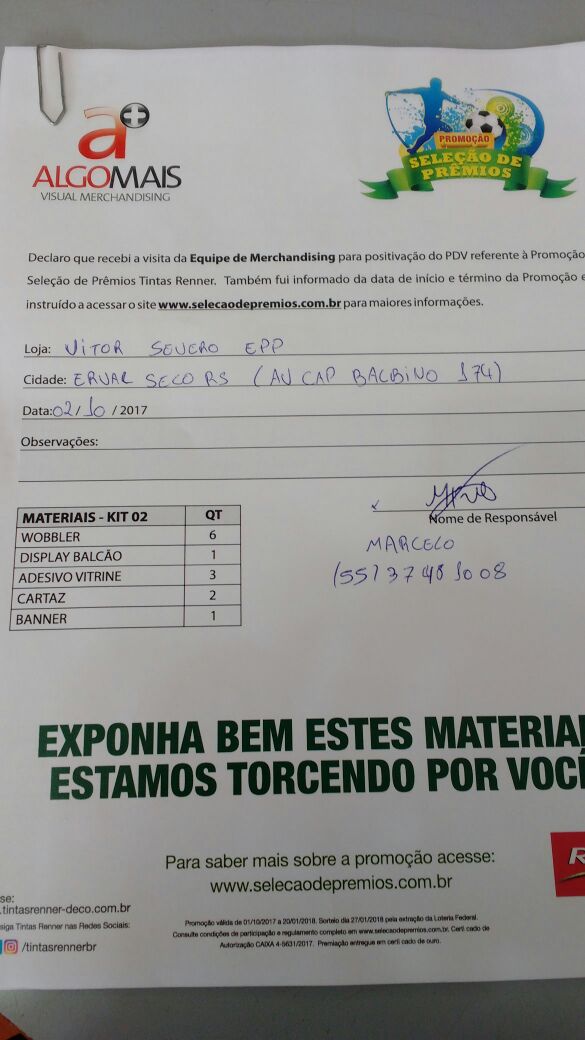 a+
ALGOMAIS
VISUAL MERCHANDISING
PROMOÇÃO
SELEÇÃO DE
PRÊMIOS
Declaro que recebi a visita da Equipe de Merchandising para positivação do PDV referente à Promoção
Seleção de Prêmios Tintas Renner. Também fui informado da data de início e término da Promoção e
instruído a acessar o site www.selecaodepremios.com.br para maiores informações.
Loja: VITOR SEVERO EPP
Cidade: ERVAL SECO RS (AV CAP BALBINO 174)
Data: 02/10 / 2017
Observações:
Nome de Responsável
MARCELO
(55) 3748 1008
MATERIAIS - KIT 02 QT
WOBBLER 6
DISPLAY BALCÃO 1
ADESIVO VITRINE 3
CARTAZ 2
BANNER 1
EXPONHA BEM ESTES MATERIAI
ESTAMOS TORCENDO POR VOCÊ
Para saber mais sobre a promoção acesse:
www.selecaodepremios.com.br
R
se:
.tintasrenner-deco.com.br
siga Tintas Renner nas Redes Sociais:
/tintasrennerbr
Promoção válida de 01/10/2017 a 20/01/2018. Sorteio dia 27/01/2018 pela extração da Loteria Federal.
Consulte condições de participação e regulamento completo em www.selecaodepremios.com.br. Certi cado de
Autorização CAIXA 4-5631/2017. Premiação entregue em certi cado de ouro.